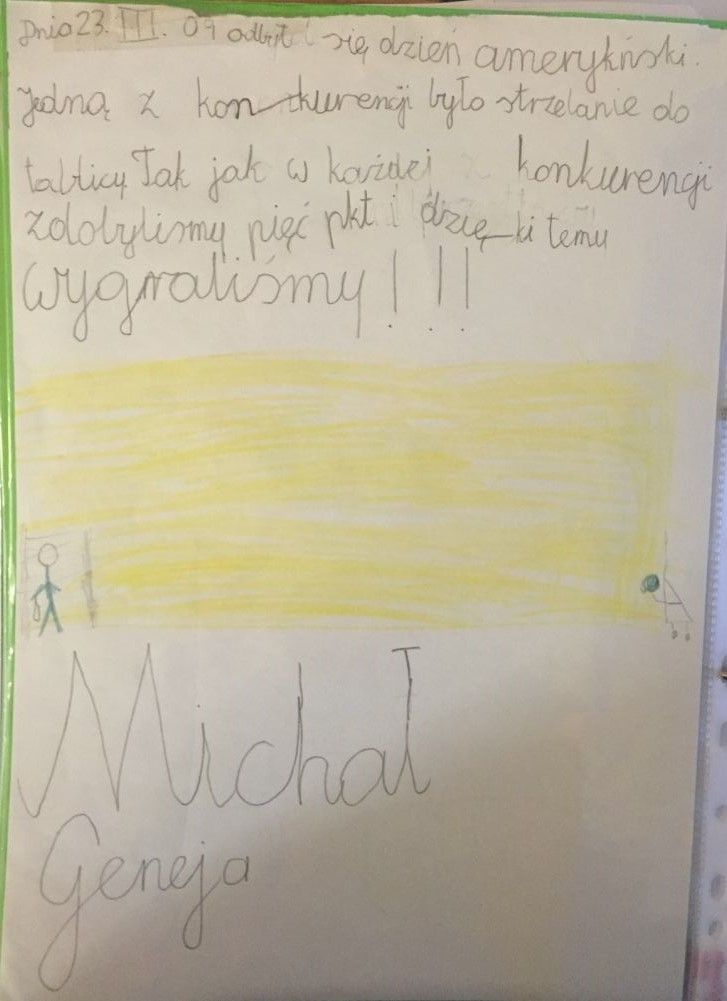 Dnia 23. III. 09 odbył się dzień amerykński.
Jedną z kon-kurengi było strzelanie do
tablicy. Tak jak w każdej konkurengi
zdobylismy pięć pkt i dzię-ki temu
wygraliśmy!!!
Michał
Geneja